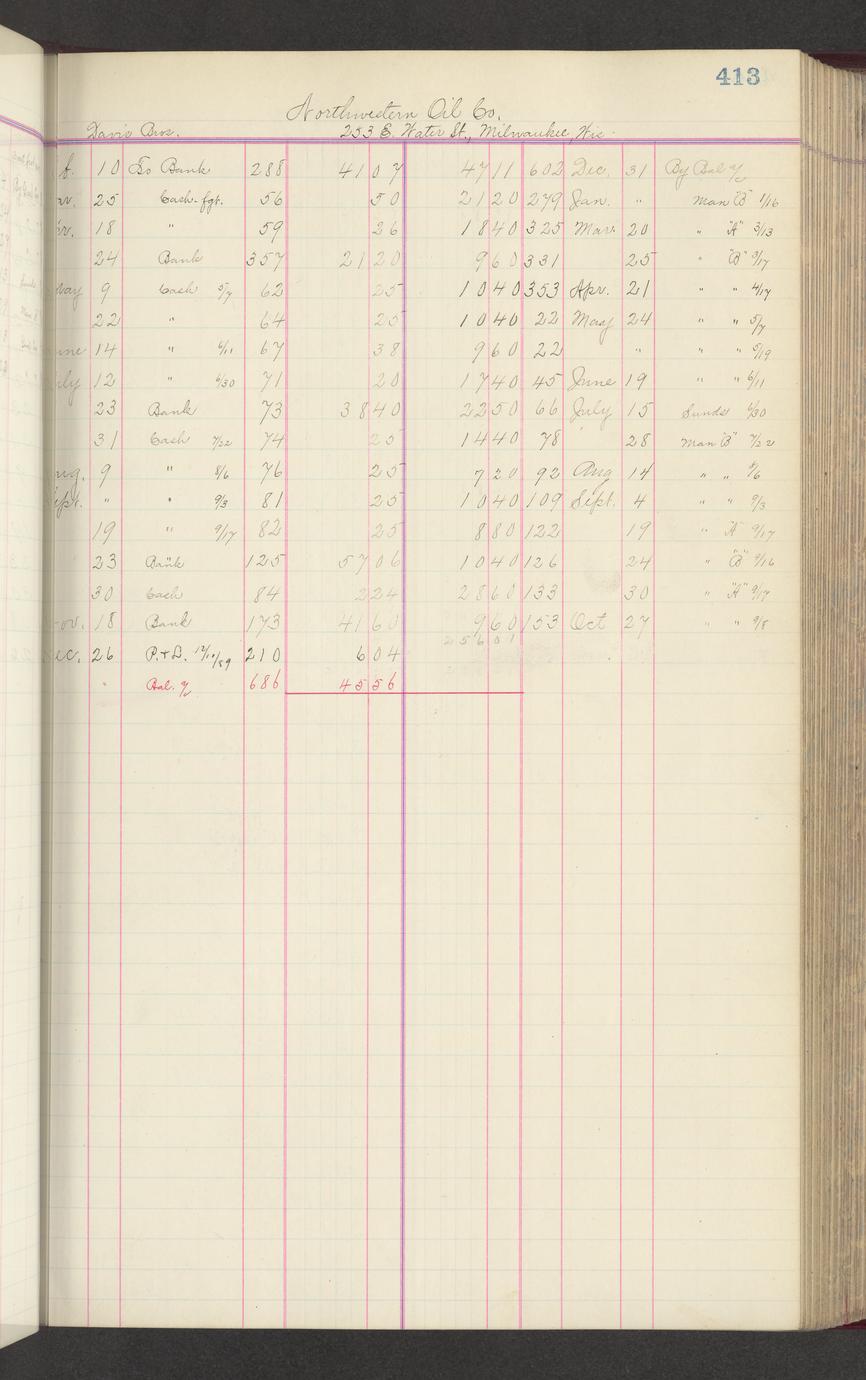 413
Northwestern Oil Co.
Davis Bros. 253 E. Water St., Milwaukee, Wis.
b. 10 To Bank 288 41 07 47 11 602 Dec. 31 By Bal
ar. 25 Cash fgt. 56 50 21 20 279 Jan. " Man "B" 1/16
pr. 18 " 59 26 18 40 325 Mar. 20 " "A" 3/13
24 Bank 357 21 20 9 60 331 25 " "B" 3/17
May 9 Cash 5/7 62 25 10 40 353 Apr. 21 " " 4/17
22 " 64 25 10 40 22 May 24 " " 5/7
une 14 " 6/11 67 38 9 60 22 " " " 5/19
uly 12 " 6/30 71 20 17 40 45 June 19 " " 6/11
23 Bank 73 38 40 22 50 66 July 15 Sunds 6/30
31 Cash 7/22 74 25 14 40 78 28 Man "B" 7/22
ug. 9 " 8/6 76 25 7 20 92 Aug 14 " " 8/6
ept. " " 9/3 81 25 10 40 109 Sept. 4 " " 9/3
19 " 9/17 82 25 8 80 122 19 " "A" 9/17
23 Bank 125 57 06 10 40 126 24 " "B" 9/16
30 Cash 84 2 24 28 60 133 30 " "A" 9/17
ov. 18 Bank 173 41 60 9 60 153 Oct 27 " " 9/8
256 01
ec. 26 P. & L. 12/10/89 210 6 04
" Bal. 686 45 56